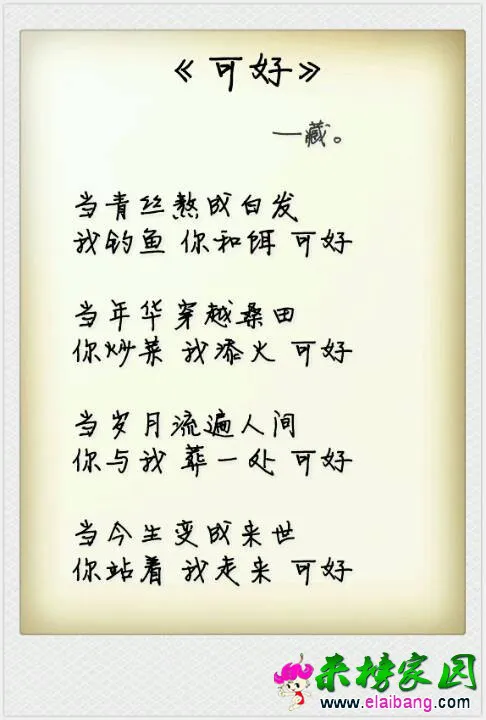 《可好》
一藏。
当青丝熬成白发
我钓鱼 你和饵 可好
当年华穿越桑田
你炒菜 我添火 可好
当岁月流遍人间
你与我 葬一处 可好
当今生变成来世
你站着 我走来 可好
来榜家园
www.elaibang.com